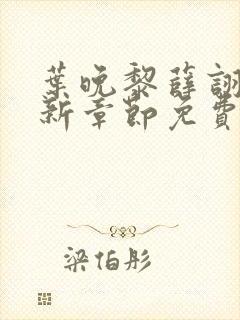 葉晚黎薛詡
新章節免費
梁伯彤